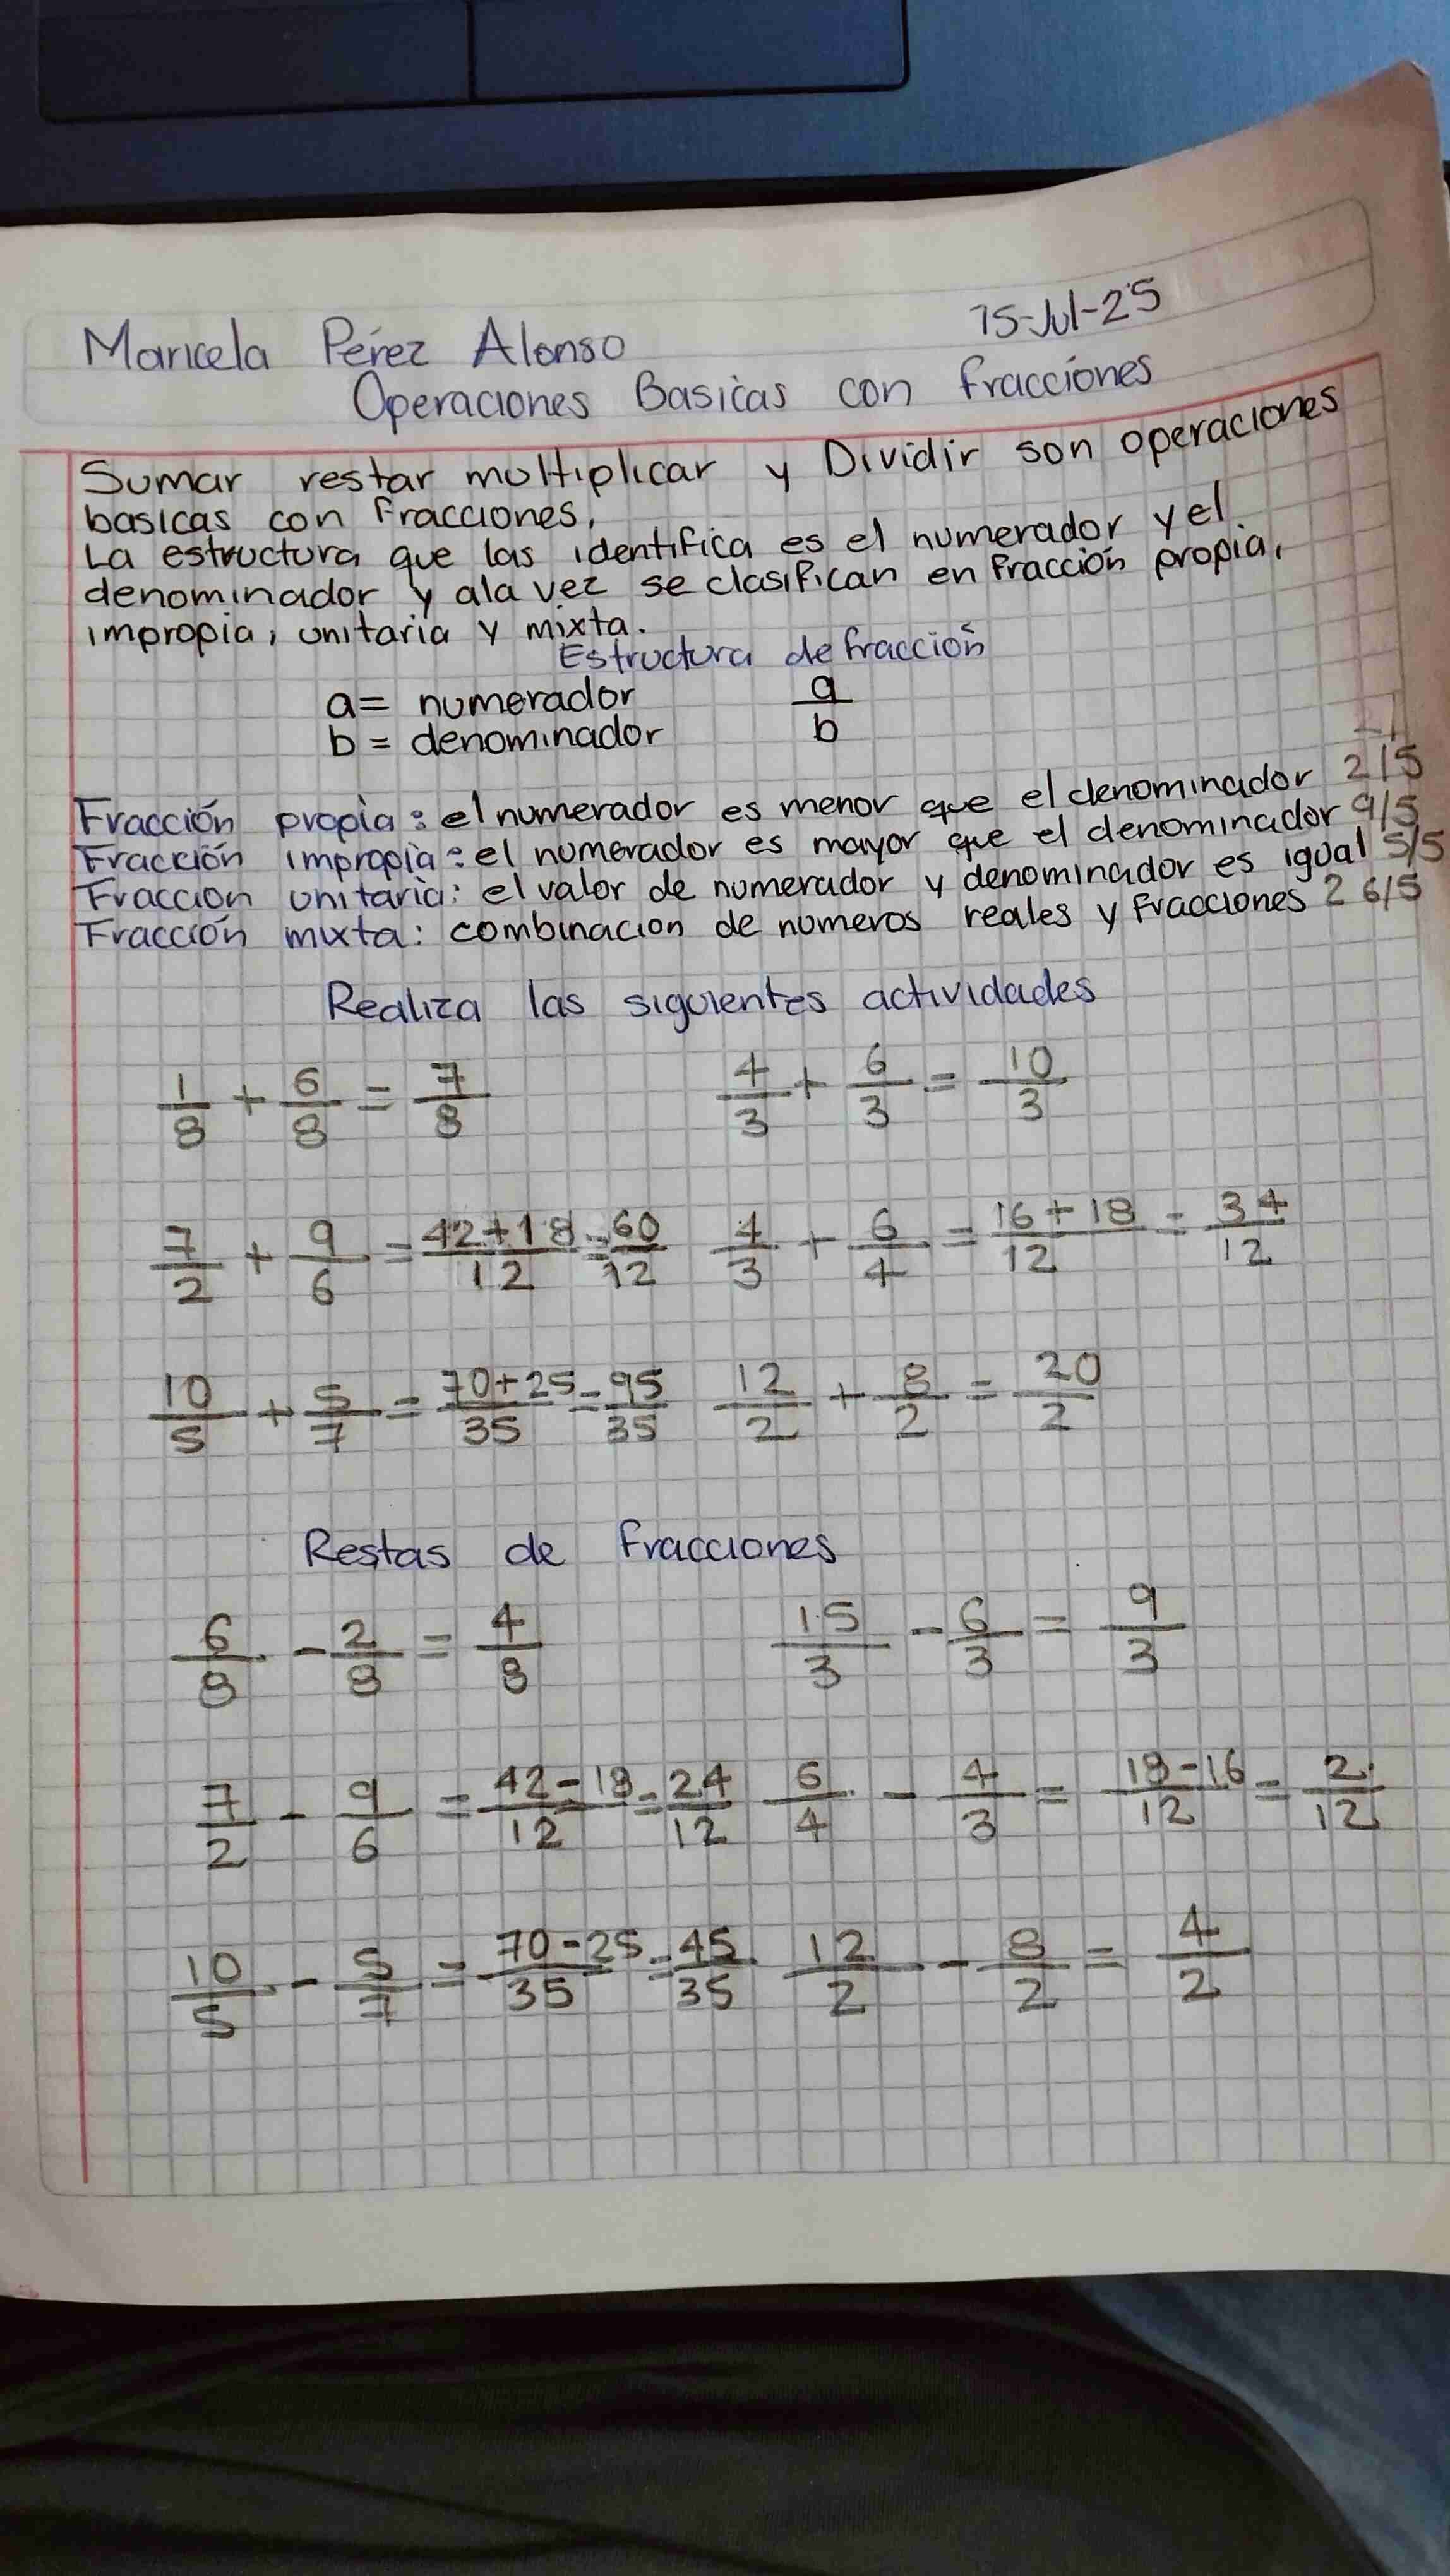 Maricela Pérez Alonso 15-Jul-25
Operaciones Basicas con fracciones
Sumar restar multiplicar y Dividir son operaciones
basicas con fracciones,
La estructura que las identifica es el numerador y el
denominador y ala vez se clasifican en fracción propia,
impropia, unitaria y mixta.
Estructura de fracción
a = numerador a
b = denominador b
Fracción propia: el numerador es menor que el denominador 2/5
Fracción impropia: el numerador es mayor que el denominador 9/5
Fraccion unitaria: el valor de numerador y denominador es igual 5/5
Fracción mixta: combinacion de numeros reales y fracciones 2 6/5
Realiza las siguientes actividades
1/8 + 6/8 = 7/8 4/3 + 6/3 = 10/3
7/2 + 9/6 = 42+18/12 = 60/12 4/3 + 6/4 = 16+18/12 = 34/12
10/5 + 5/7 = 70+25/35 = 95/35 12/2 + 8/2 = 20/2
Restas de fracciones
6/8 - 2/8 = 4/8 15/3 - 6/3 = 9/3
7/2 - 9/6 = 42-18/12 = 24/12 6/4 - 4/3 = 18-16/12 = 2/12
10/5 - 5/7 = 70-25/35 = 45/35 12/2 - 8/2 = 4/2